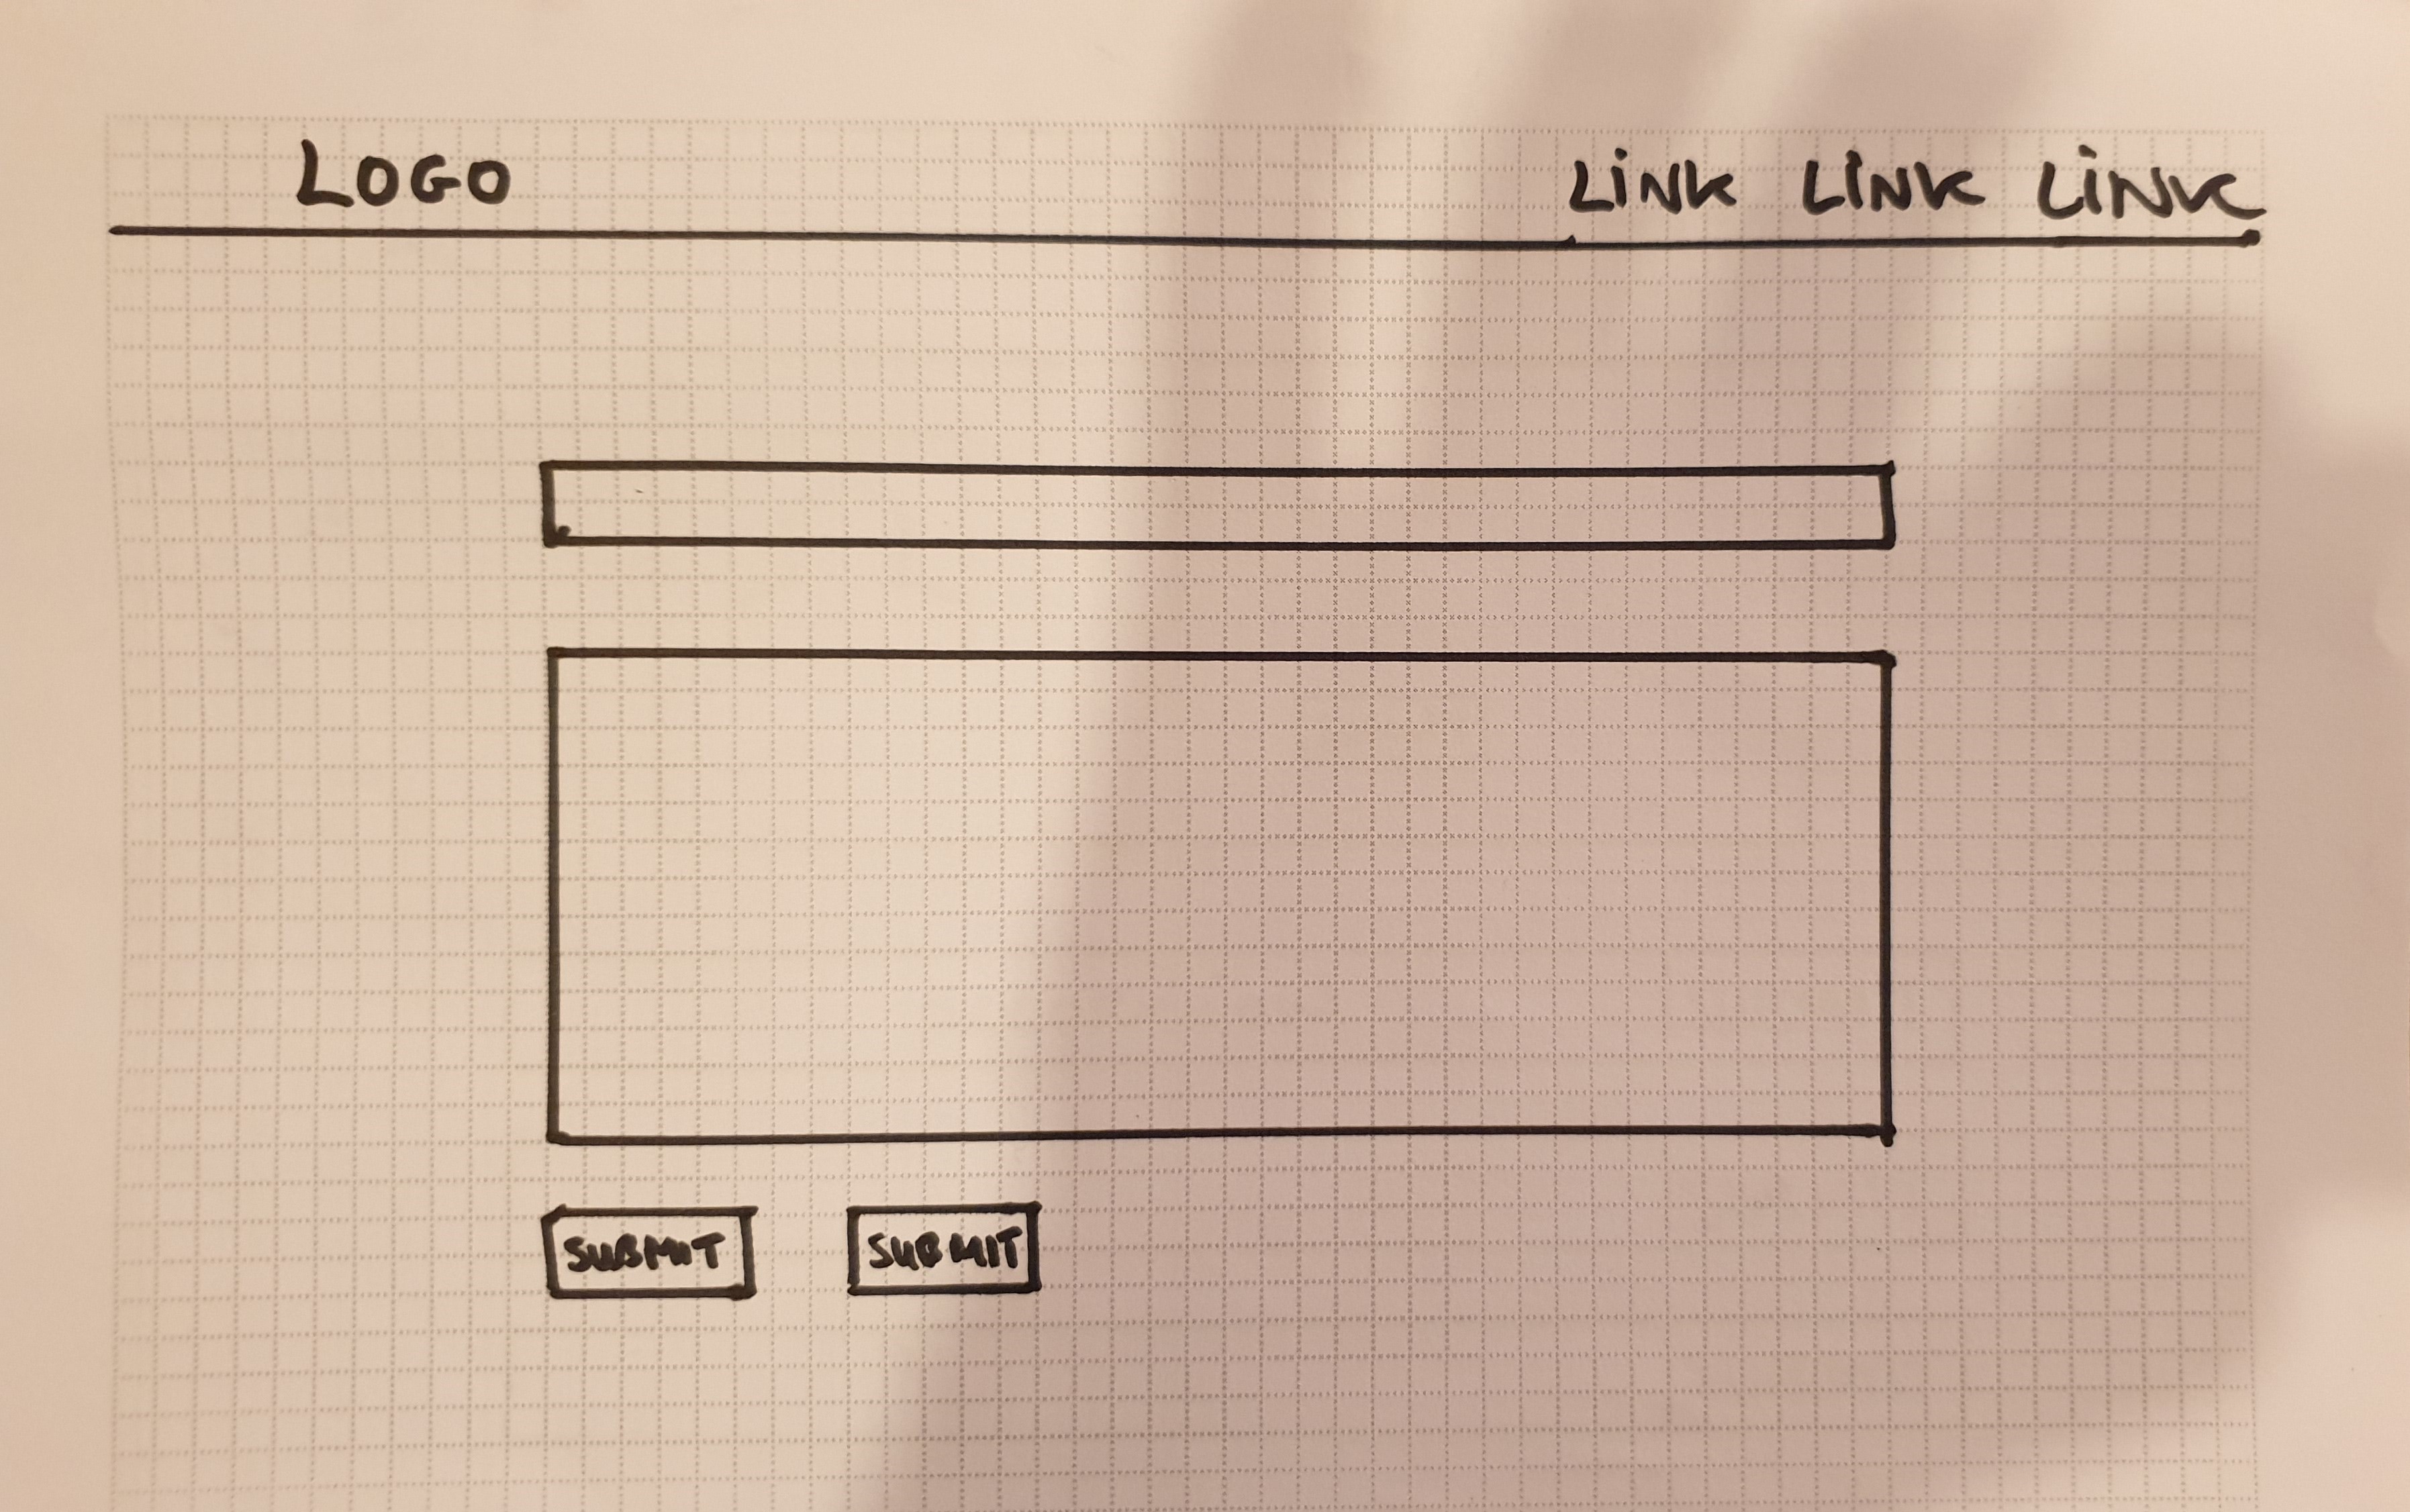 LOGO LINK LINK LINK
SUBMIT SUBMIT